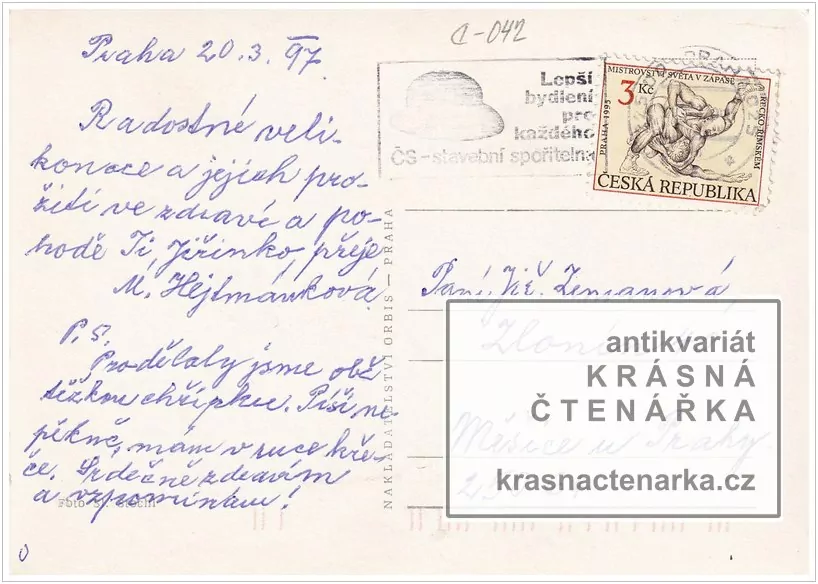 C-042
Praha 20. 3. 97.
Radostné veli-
konoce a jejich pro-
žití ve zdraví a po-
hodě Ti, Jiřinko, přeje
M. Hejtmánková.
P. S.
Prodělaly jsme obě
těžkou chřipku. Píši ne-
pěkně, mám v ruce kře-
če. Srdečně zdravím
a vzpomínám!
Foto
NAKLADATELSTVÍ ORBIS — PRAHA
Lepší
bydlení
pro
každého
ČS-stavební spořitelna
MISTROVSTVÍ SVĚTA V ZÁPASE
ŘECKO-ŘÍMSKÉM
PRAHA 1995
3 Kč
ČESKÁ REPUBLIKA
Paní Jiř. Zemanová,
Měšice u Prahy
antikvariát
KRÁSNÁ
ČTENÁŘKA
krasnactenarka.cz